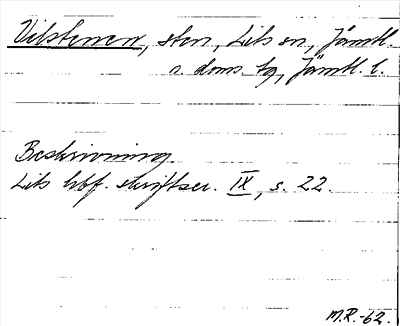 Vilstenen, sten, Lits sn, Jämtl.
n. doms. bg, Jämtl. l.
Beskrivning.
Lits hbf. skriftser. IX, s. 22.
M.R.-62.